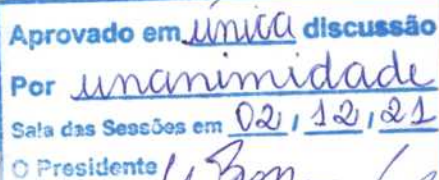 Aprovado em única discussão
Por unanimidade
Sala das Sessões em 02, 12, 21
O Presidente